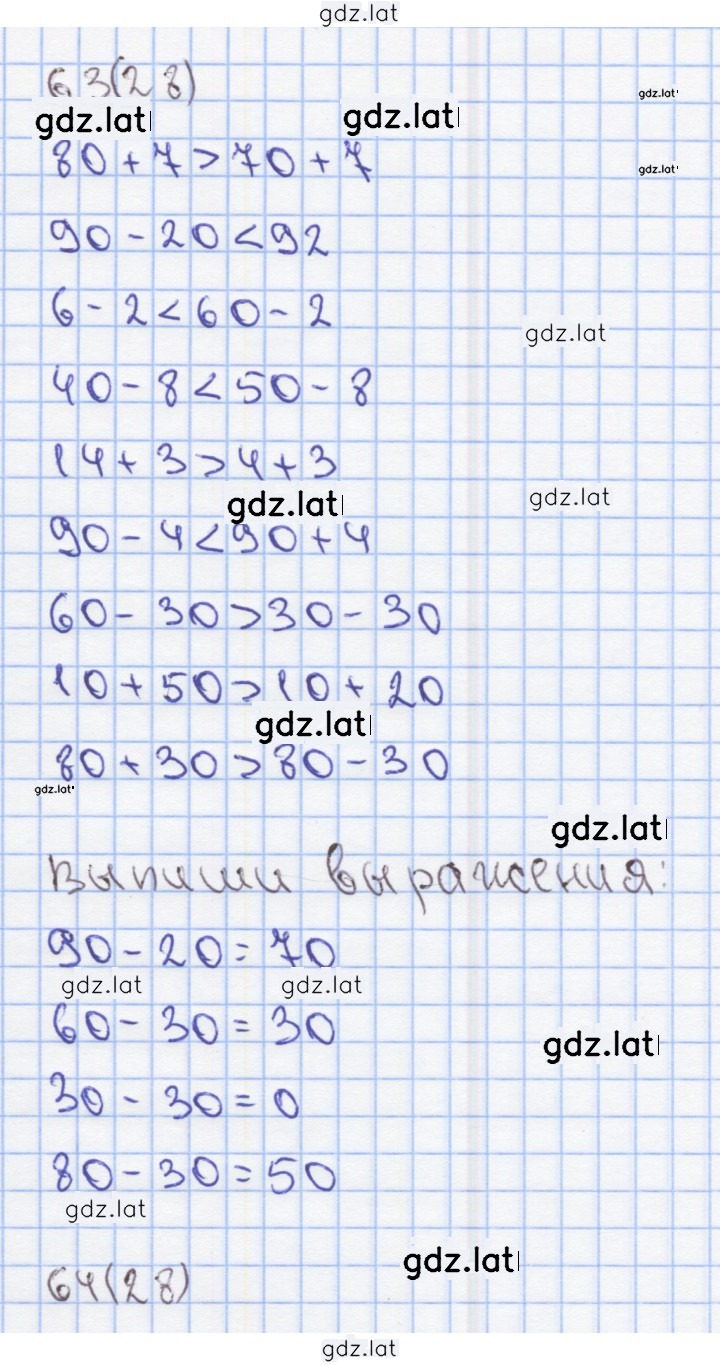 gdz.lat
63(28)
gdz.lat
gdz.lat gdz.lat
80+7>70+7
gdz.lat
90-20<92
6-2<60-2
gdz.lat
40-8<50-8
14+3>4+3
gdz.lat gdz.lat
90-4<90+4
60-30>30-30
10+50>10+20
gdz.lat
80+30>80-30
gdz.lat
gdz.lat
Выпиши выражения:
90-20=70
gdz.lat gdz.lat
60-30=30
gdz.lat
30-30=0
80-30=50
gdz.lat
gdz.lat
64(28)
gdz.lat